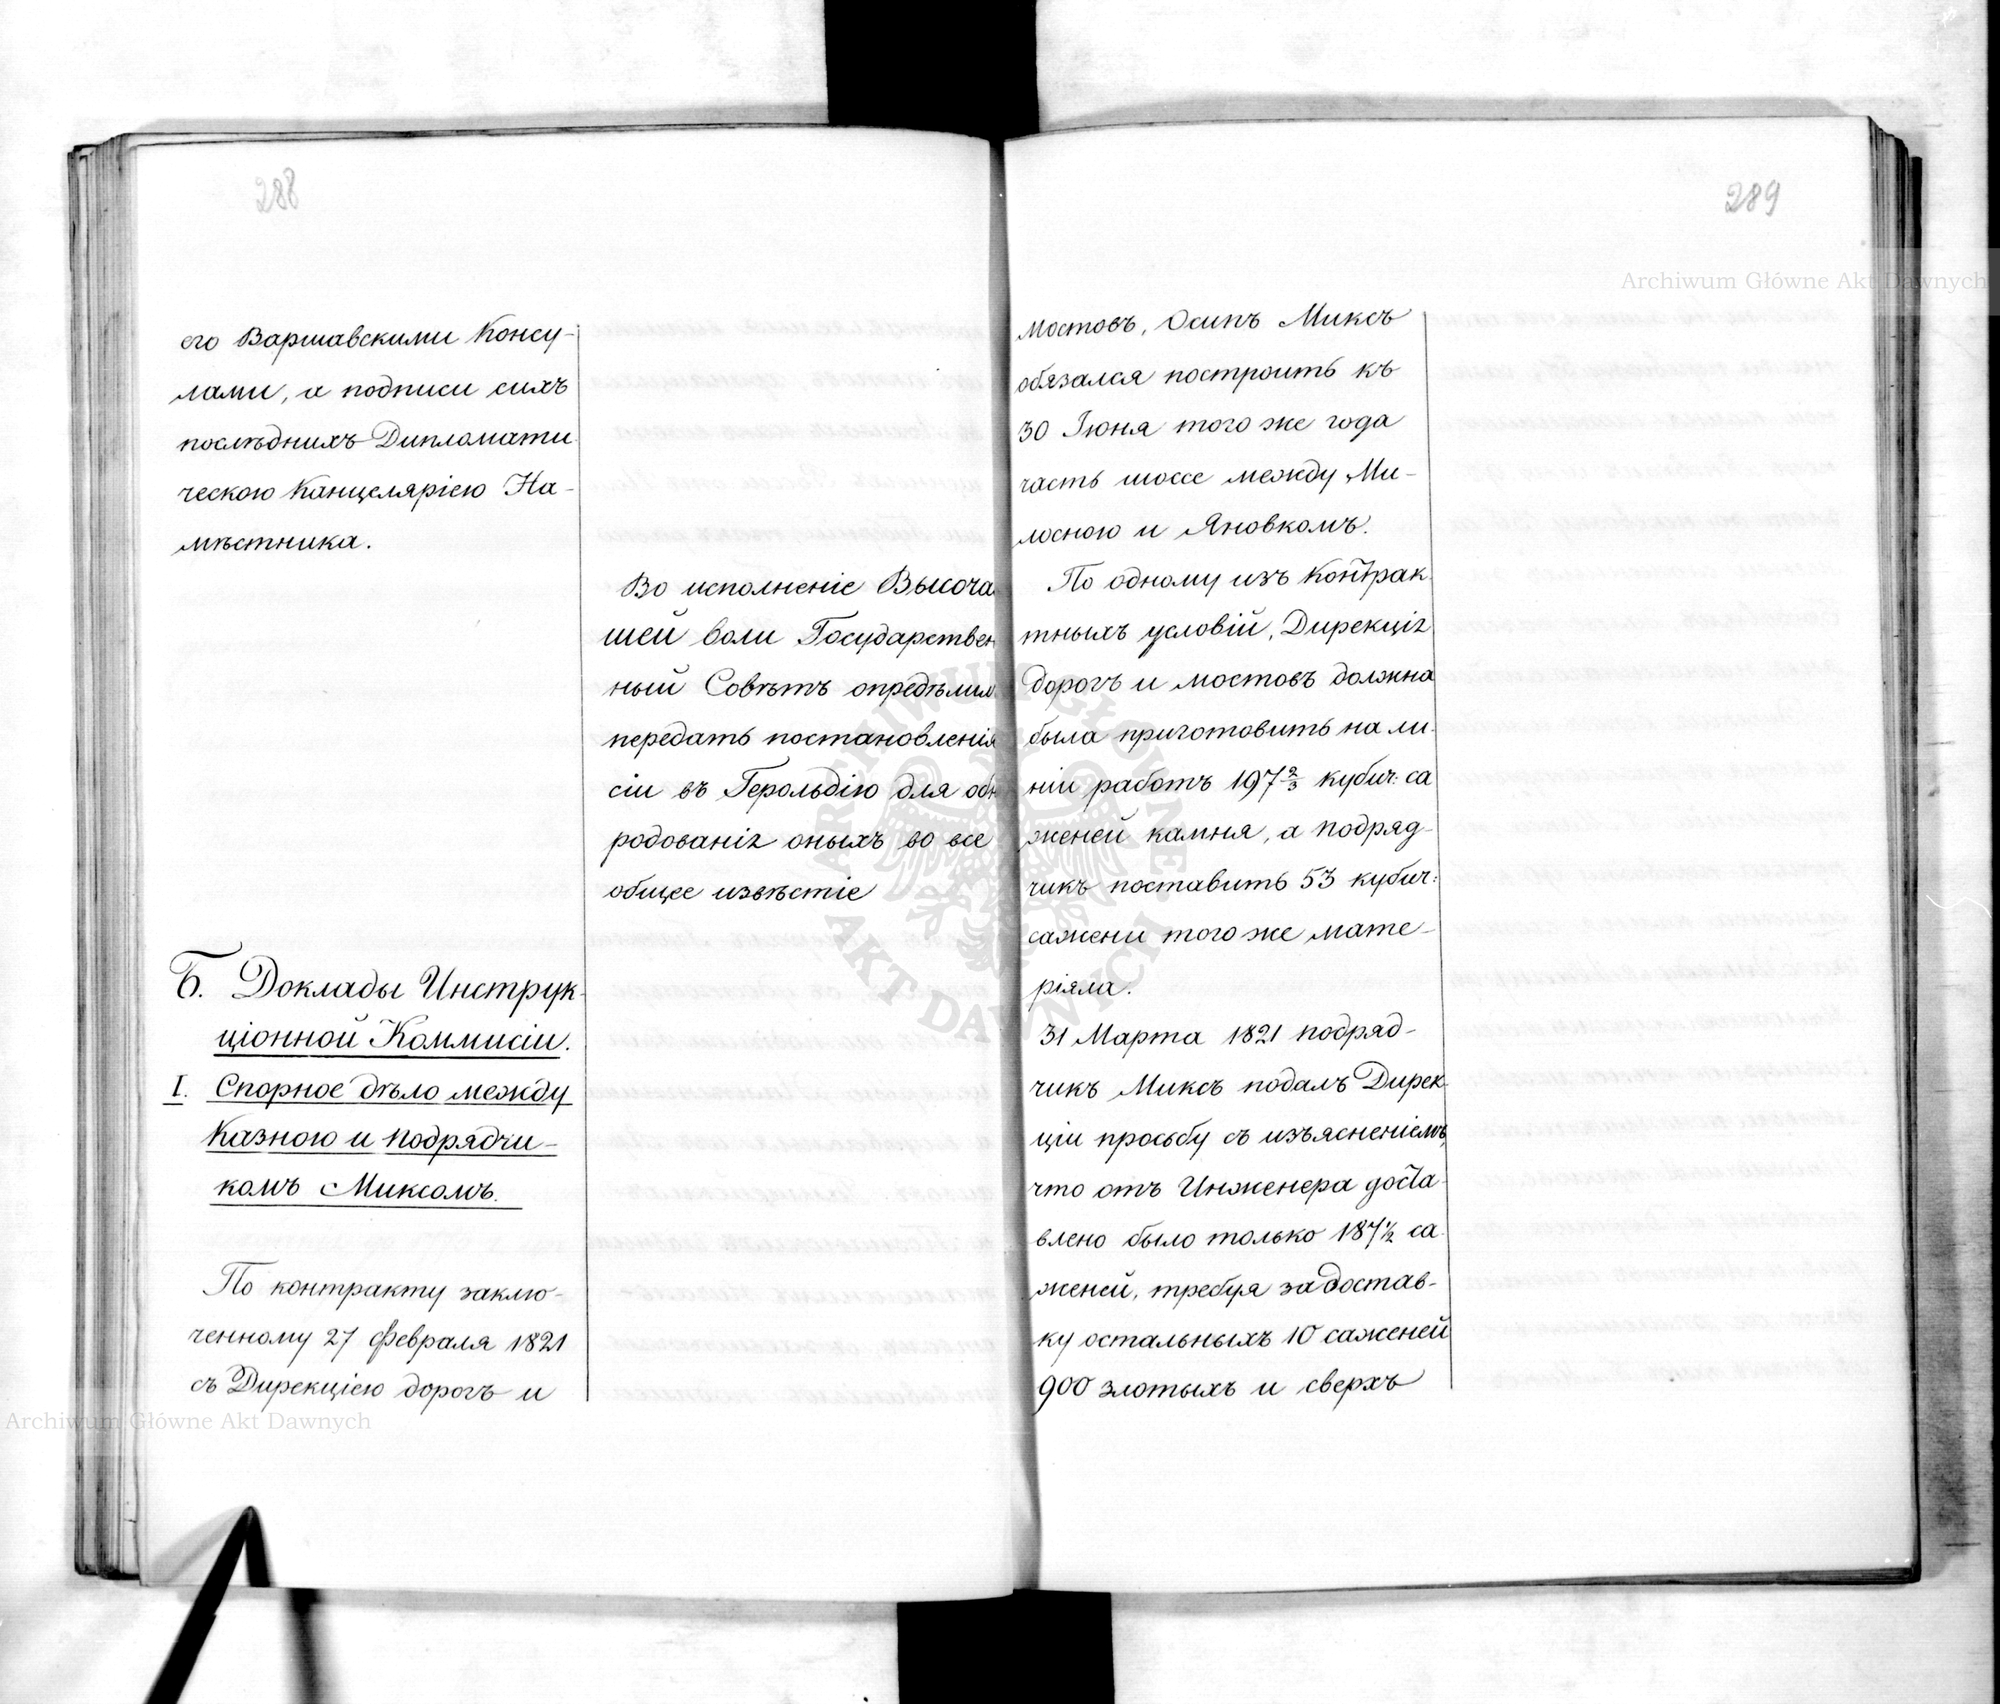 288
его Варшавскими Консу-
лами, а подписи сихъ
послѣднихъ Дипломати
ческою Канцеляріею На-
мѣстника.
Во исполненіе Высоча
шей воли Государствен
ный Совѣтъ опредѣлил
передать постановленія
сіи въ Герольдію для обн
родованія оныхъ во все
общее извѣстіе
Б. Доклады Инструк-
ціонной Коммисіи.
I. Спорное дѣло между
Казною и Подрядчи-
комъ Миксомъ.
По контракту заклю-
ченному 27 Февраля 1821
съ Дирекціею дорогъ и
289
мостовъ, Осипъ Миксъ
обязался построить къ
30 Іюня того же года
часть шоссе между Ми-
лосною и Яновкомъ.
По одному изъ Контрак
тныхъ условій, Дирекція
дорогъ и мостовъ должна
была приготовить на ли-
ніи работъ 197 2/3 кубич: са
женей камня, а подряд-
чикъ поставить 53 кубич:
сажени того же мате-
ріяла.
31 Марта 1821 подряд-
чикъ Миксъ подалъ Дирек-
ціи просьбу съ изъясненіемъ,
что отъ Инженера доста-
влено было только 187 1/2 са-
женей, требуя за достав-
ку остальныхъ 10 саженей
900 злотыхъ и сверхъ
Archiwum Główne Akt Dawnych
Archiwum Główne Akt Dawnych
ARCHIWUM GŁÓWNE
AKT DAWNYCH